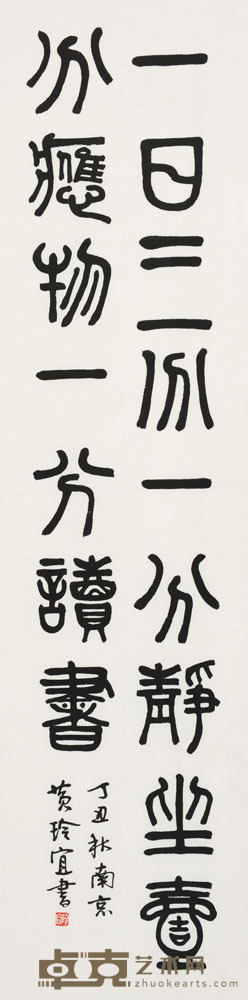 一日三分一分靜坐壹
分應物一分讀書
丁丑秋南京
黄玲宜書
卓克艺术网
zhuokearts.com